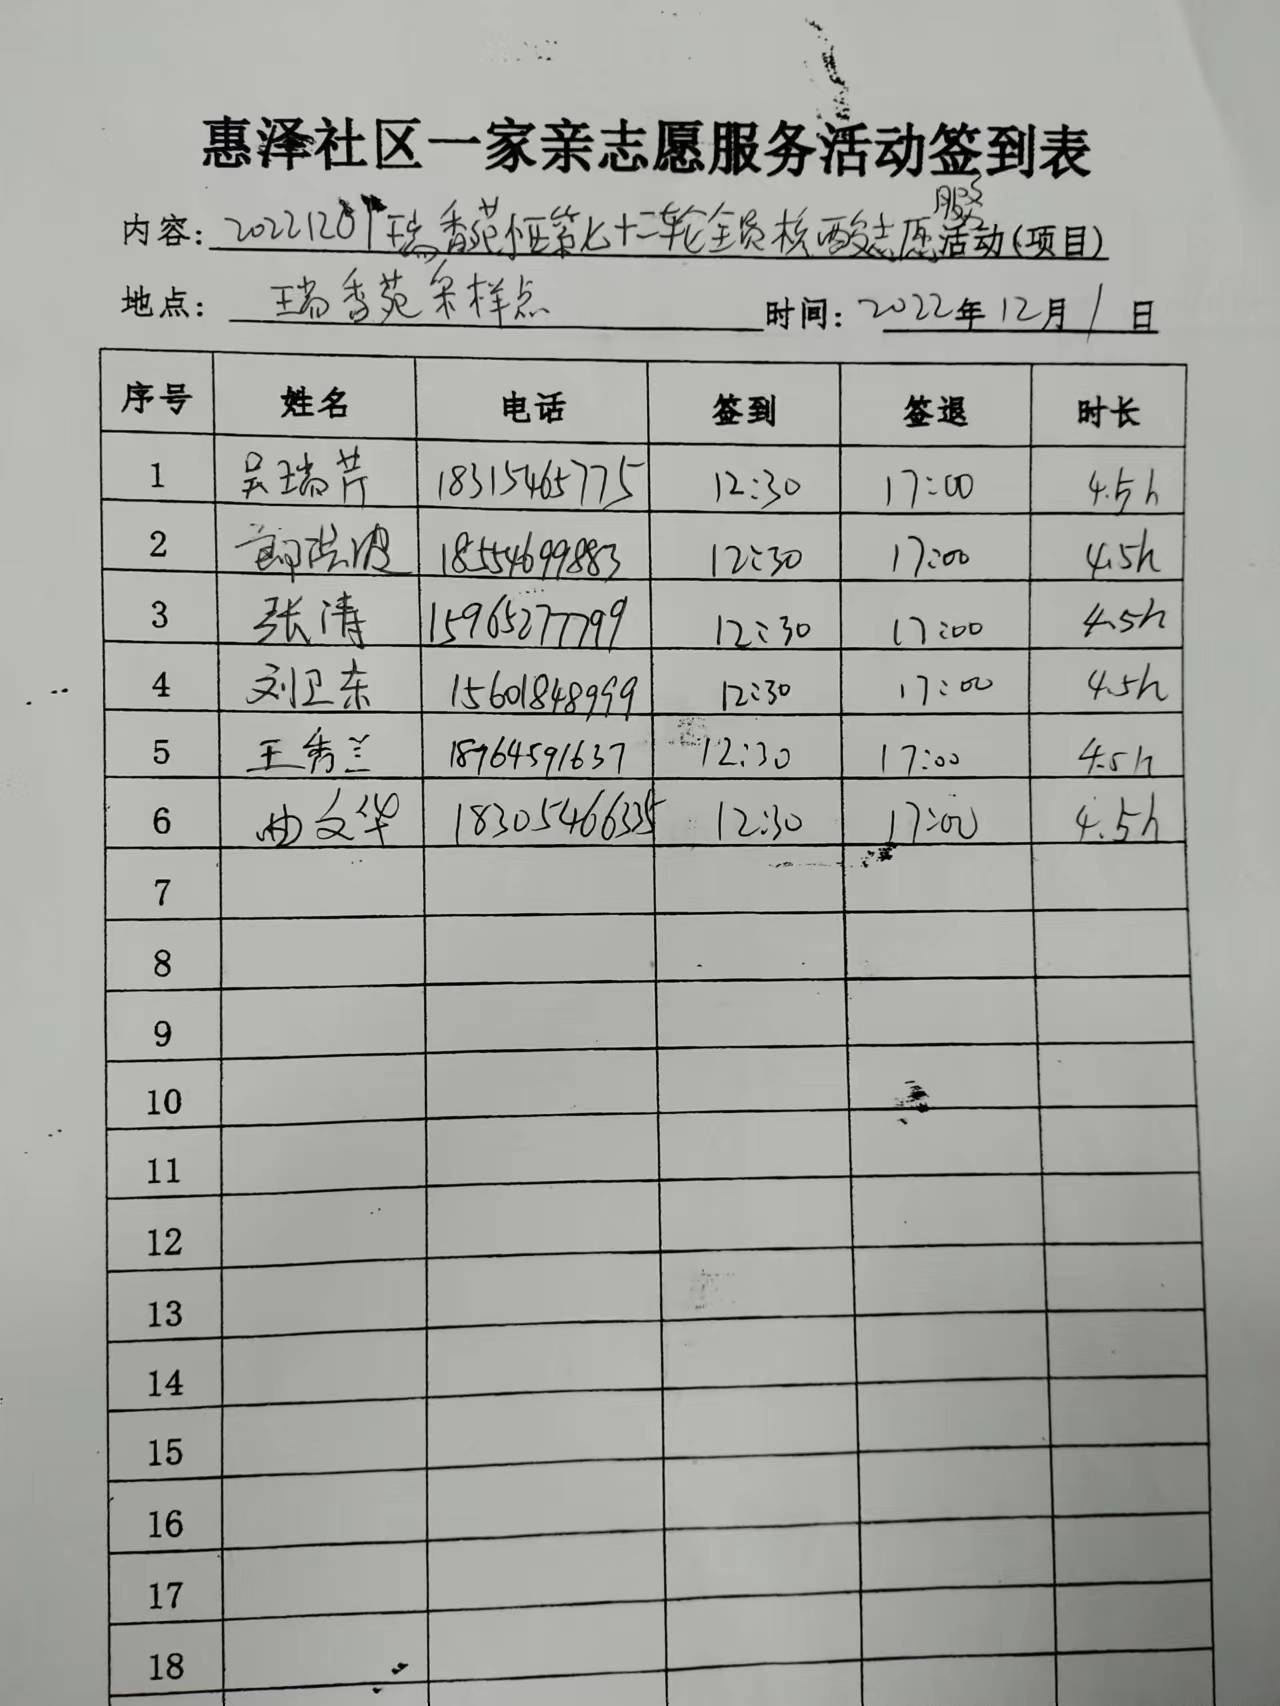 惠泽社区一家亲志愿服务活动签到表
内容: 20221201瑞香苑第七十二轮全员核酸志愿服务活动(项目)
地点: 瑞香苑采样点 时间: 2022年12月1日
序号 姓名 电话 签到 签退 时长
1 吴瑞芹 18315465775 12:30 17:00 4.5h
2 18554699883 12:30 17:00 4.5h
3 张清 15965277799 12:30 17:00 4.5h
4 刘卫东 15601848999 12:30 17:00 4.5h
5 王秀兰 18764591637 12:30 17:00 4.5h
6 曲文华 18305466335 12:30 17:00 4.5h
7
8
9
10
11
12
13
14
15
16
17
18